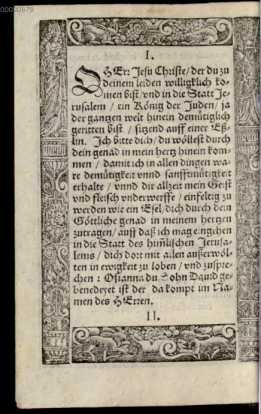 I.
O HErr Jesu Christe / der du zu
deinem leiden williglich ko-
men bist / vnd in die Statt Je-
rusalem / ein König der Juden / ja
der gantzen welt hinein demütiglich
geritten bist / sitzend auff einer Eß-
lin. Ich bitte dich / du wöllest durch
dein genad in mein hertz hinein kom-
men / damit ich in allen dingen wa-
re demütigkeit vnnd sanfftmütigkeit
erhalte / vnnd dir allzeit mein Geist
vnd fleisch vnderwerffe / einfeltig zu
werden wie ein Esel / dich durch dein
Göttliche genad in meinem hertzen
zutragen / auff daß ich mag eingehen
in die Statt des himlischen Jerusa-
lems / dich dort mit allen außerwöl-
ten in ewigkeit zu loben / vnd zuspre-
chen : Osianna du Sohn Dauid ge-
benedeyet ist der da kompt im Na-
men des HErren.
II.